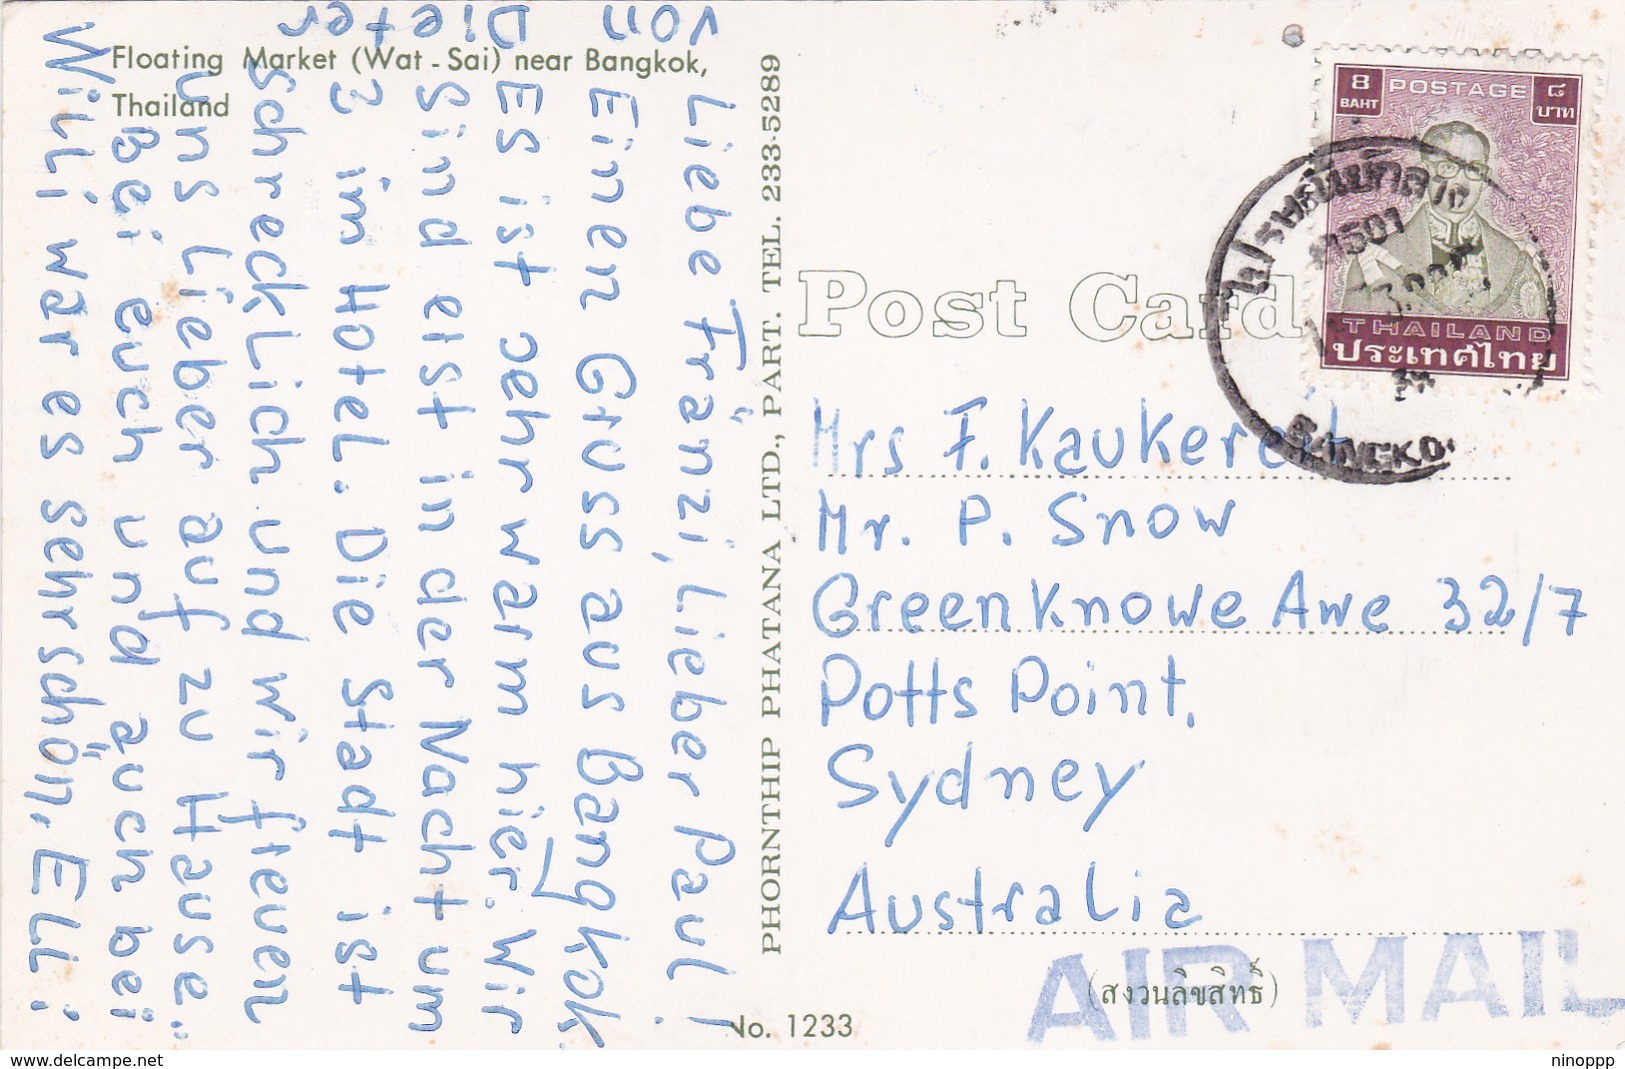 Floating Market (Wat - Sai) near Bangkok,
Thailand
Liebe Fränzi, Lieber Paul!
Einen Gruss aus Bangkok
Es ist sehr warm hier. Wir
Sind erst in der Nacht um
3 im Hotel. Die Stadt ist
schrecklich und wir freuen
uns Lieber auf zu Hause.
Bei euch und auch bei
Willi war es sehr schön, Elli
von
Dieter
PHORNTHIP PHATANA LTD., PART. TEL. 233-5289
Post Card
8 POSTAGE ๘
BAHT บาท
THAILAND
ประเทศไทย
BANGKOK
Mrs F. Kaukereit
Mr. P. Snow
Greenknowe Awe 32/7
Potts Point,
Sydney
Australia
AIR MAIL
(สงวนลิขสิทธิ์)
No. 1233
delcampe.net
ninoppp